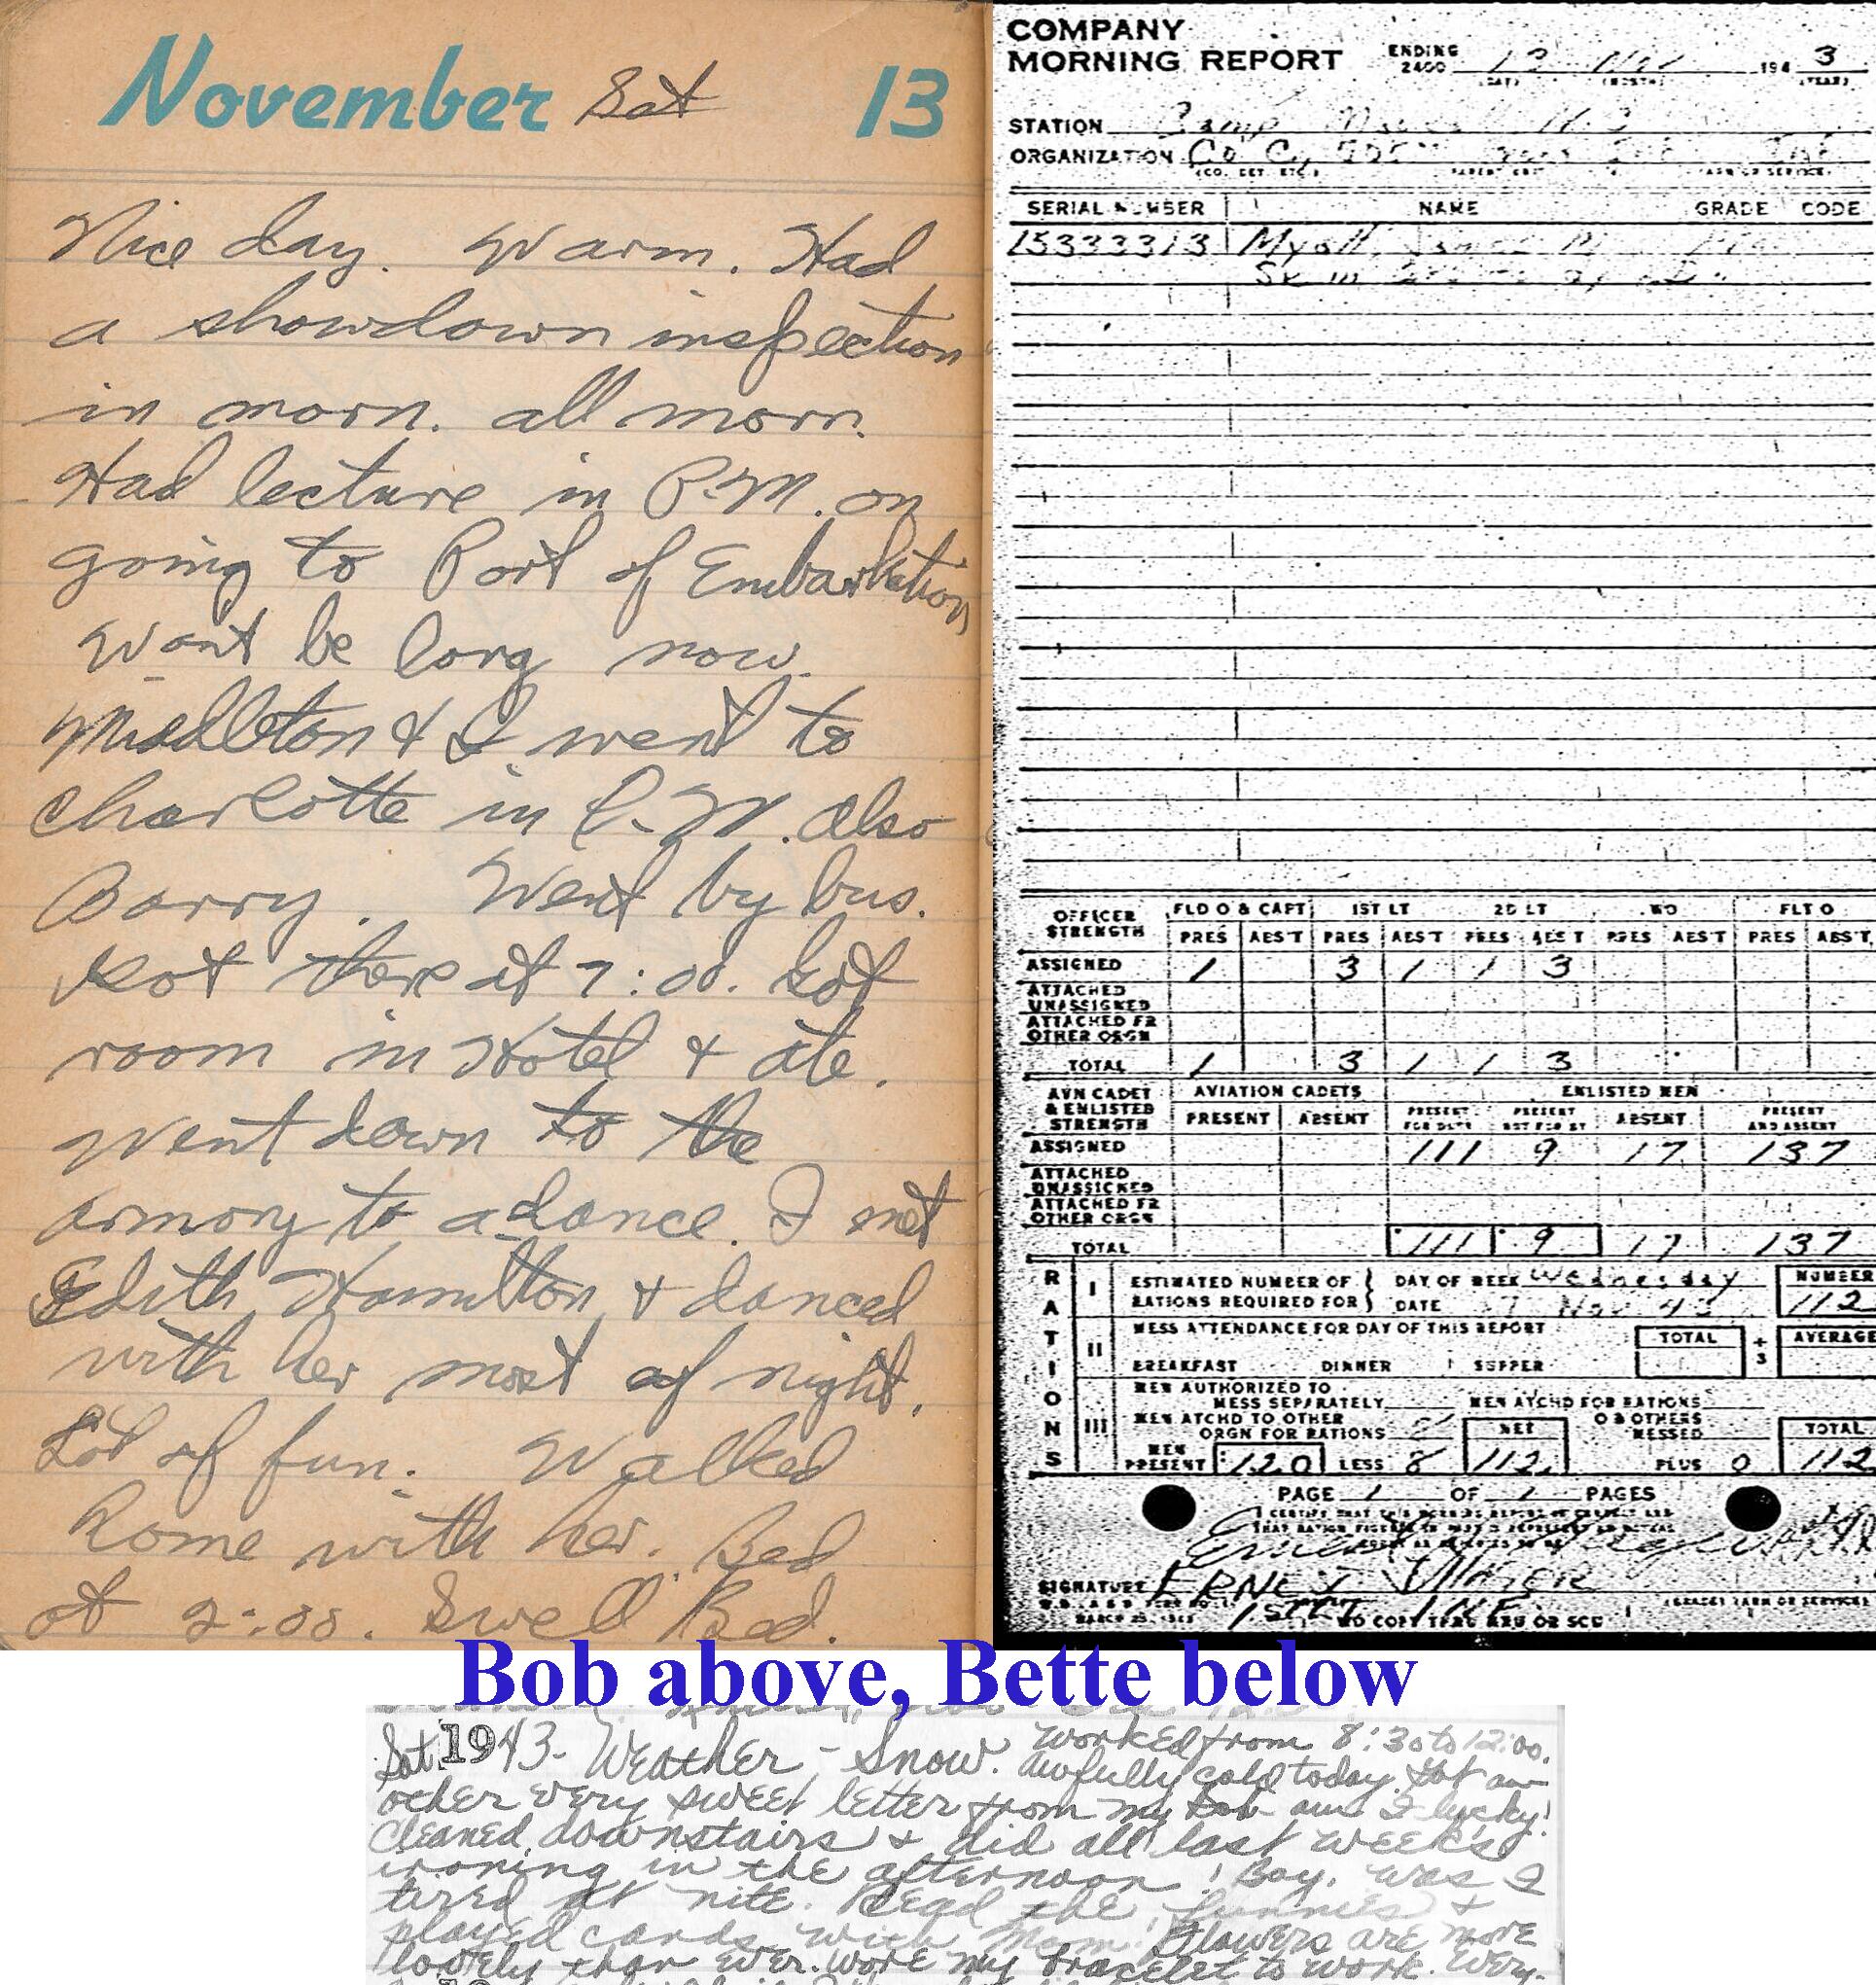 November Sat 13
Nice day. Warm. Had
a showdown inspection
in morn. all morn.
Had lecture in P.M. on
going to Port of Embarkation
Wont be long now.
Middleton & I went to
Charlotte in P.M. also
Barry. Went by bus.
Got there at 7:00. Got
room in Hotel & ate.
Went down to the
armory to a dance. I met
Edith Hamilton & danced
with her most of night.
Lot of fun. Walked
home with her. Bed
at 2:00. Swell Bed.
COMPANY
MORNING REPORT ENDING 2400 13 Nov 194 3
(DAY) (MONTH) (YEAR)
STATION Camp N.C.
ORGANIZATION Co C,
(CO. DET. ETC.) PARENT UNIT (ARM OR SERVICE)
SERIAL NUMBER NAME GRADE CODE
15333313
OFFICER STRENGTH FLD O & CAPT 1ST LT 2D LT WO FLT O
PRES ABS'T PRES ABS'T PRES ABS'T PRES ABS'T PRES ABS'T
ASSIGNED 1 3 1 1 3
ATTACHED UNASSIGNED
ATTACHED FR OTHER ORGN
TOTAL 1 3 1 1 3
AVN CADET & ENLISTED STRENGTH AVIATION CADETS ENLISTED MEN
PRESENT ABSENT PRESENT FOR DUTY PRESENT NOT FOR DY ABSENT PRESENT AND ABSENT
ASSIGNED 111 9 17 137
ATTACHED UNASSIGNED
ATTACHED FR OTHER ORGN
TOTAL 111 9 17 137
RATIONS
I ESTIMATED NUMBER OF RATIONS REQUIRED FOR DAY OF WEEK Wednesday NUMBER
DATE 17 Nov 43 112
II MESS ATTENDANCE FOR DAY OF THIS REPORT TOTAL ÷ 3 AVERAGE
BREAKFAST DINNER SUPPER
III MEN AUTHORIZED TO MESS SEPARATELY MEN ATCHD FOR RATIONS
MEN ATCHD TO OTHER ORGN FOR RATIONS 8 NET O & OTHERS MESSED TOTAL
MEN PRESENT 120 LESS 8 112 PLUS 0 112
PAGE 1 OF 1 PAGES
I CERTIFY THAT THIS MORNING REPORT IS CORRECT AND
SIGNATURE ERNEST
MARCH 25, 1943 1ST LT INF NO COPY THRU MRU OR SCU
Bob above, Bette below
Sat. 1943 - Weather - Snow. Worked from 8:30 to 12:00.
Awfully cold today. Got an
other very sweet letter from my Bob am I lucky!
Cleaned downstairs & did all last week's
ironing in the afternoon! Boy, was I
tired at nite. Read the funnies &
played cards with Mom. Flowers are more
lovely than ever. Wore my bracelet to work. Every-